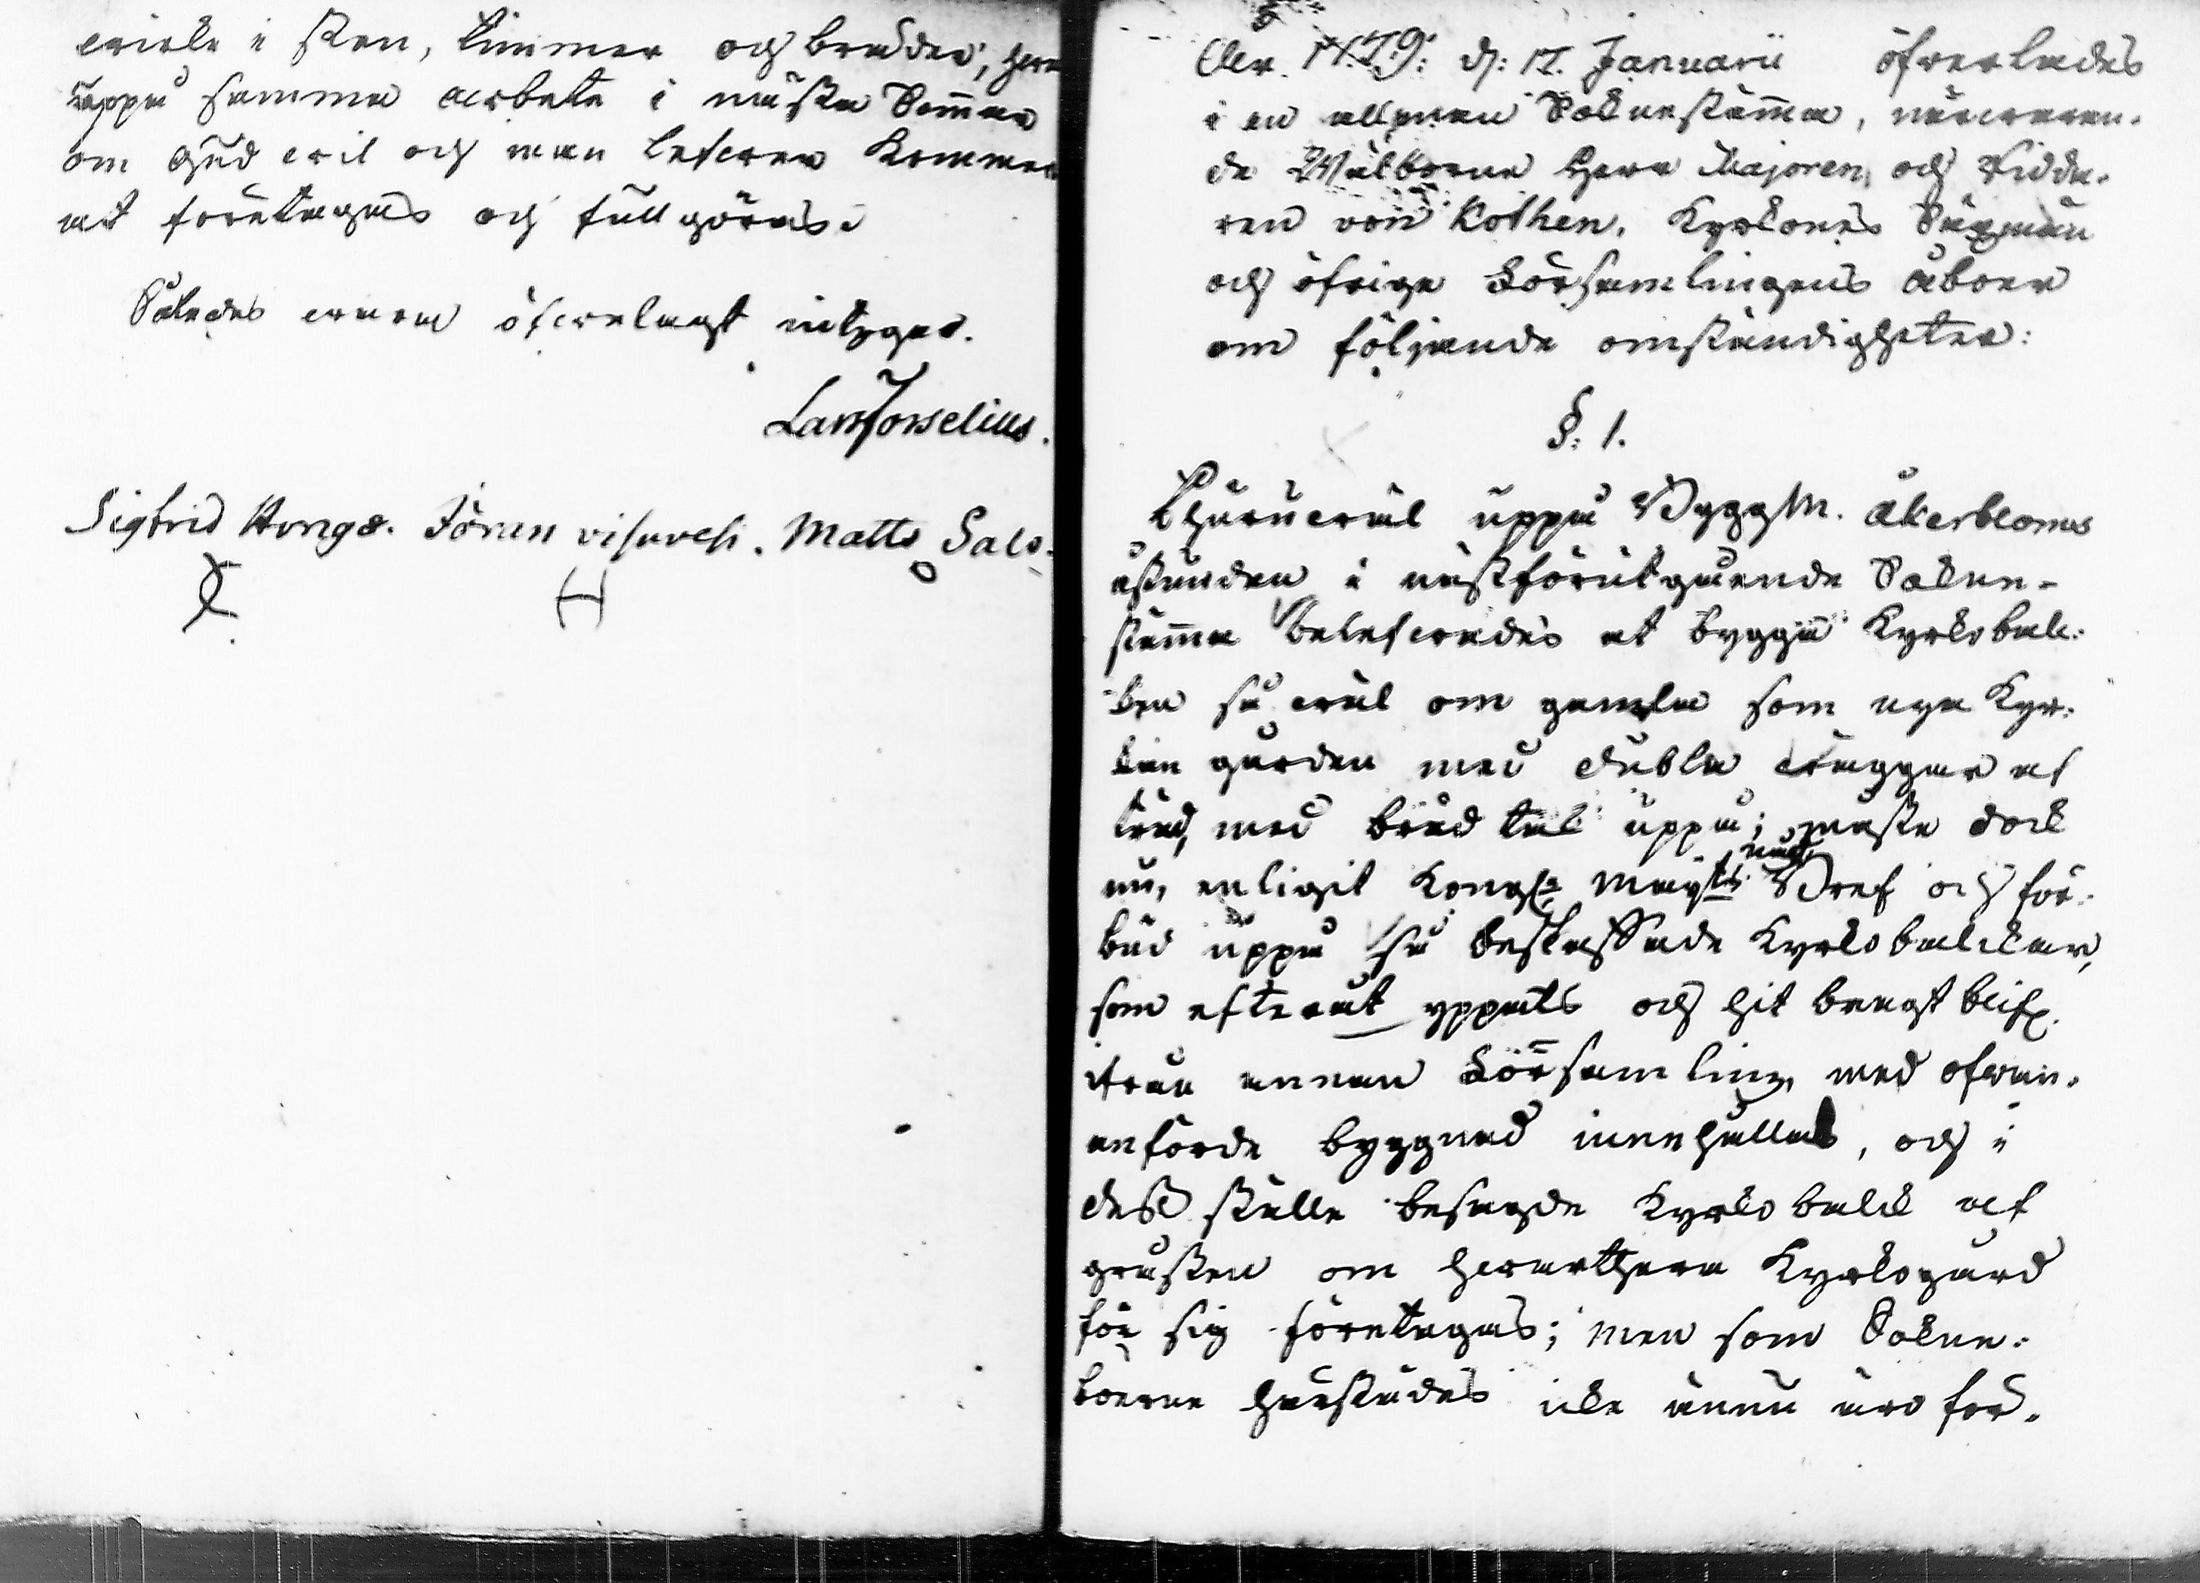 wirke i sten, timmer och bräder, hwar
uppå samma arbete i nästa Som̄ar
om Gud will och man lefwer kommer
at företagas och fullgöras.
Således wara öfwerlagt intygar.
Lars Forselius.
Sigfrid Anngs. Jöran visuvesi. Matts Salo-
Åhr 1779: d: 17. Januarii öfverlades
i en allmän Soknestäm̄a, närwaran-
de Wälborne Herr Majoren och Ridda-
ren von Kothen, Kyrkones Sexmän
och öfrige Församlingens åboer
om följande omständigheter:
§: 1.
Churuwäl uppå Byggm. Åkerbloms
åstundan i nästförutgående Sokne-
stäm̄a belefwades at bygga Kyrkobal-
ken så wäl om gamla som nya Kyr-
kan gården med dubla wäggar af
träd, med bräd tak uppå; måste dock
nu, enligit Kongl. Maijts nåd. Bref och för-
bud uppå så beskaffade Kyrkobalckar,
som efteråt yppats och hit bragt blif.
ifrån annan Församling, med ofwan-
anförde byggnad innehållas, och i
dess ställe besagde Kyrkobalck af
gråsten om hwarthera Kyrkogård
för sig företagas; men som Sokne-
boerne härstädes icke ännu äro för-